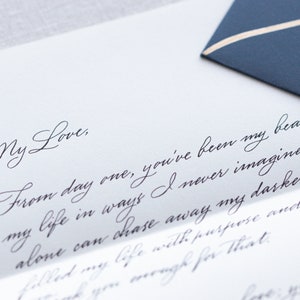 My Love,
From day one, you've been my bea
my life in ways I never imagine
alone can chase away my darke
filled my life with purpose and
you enough for that.